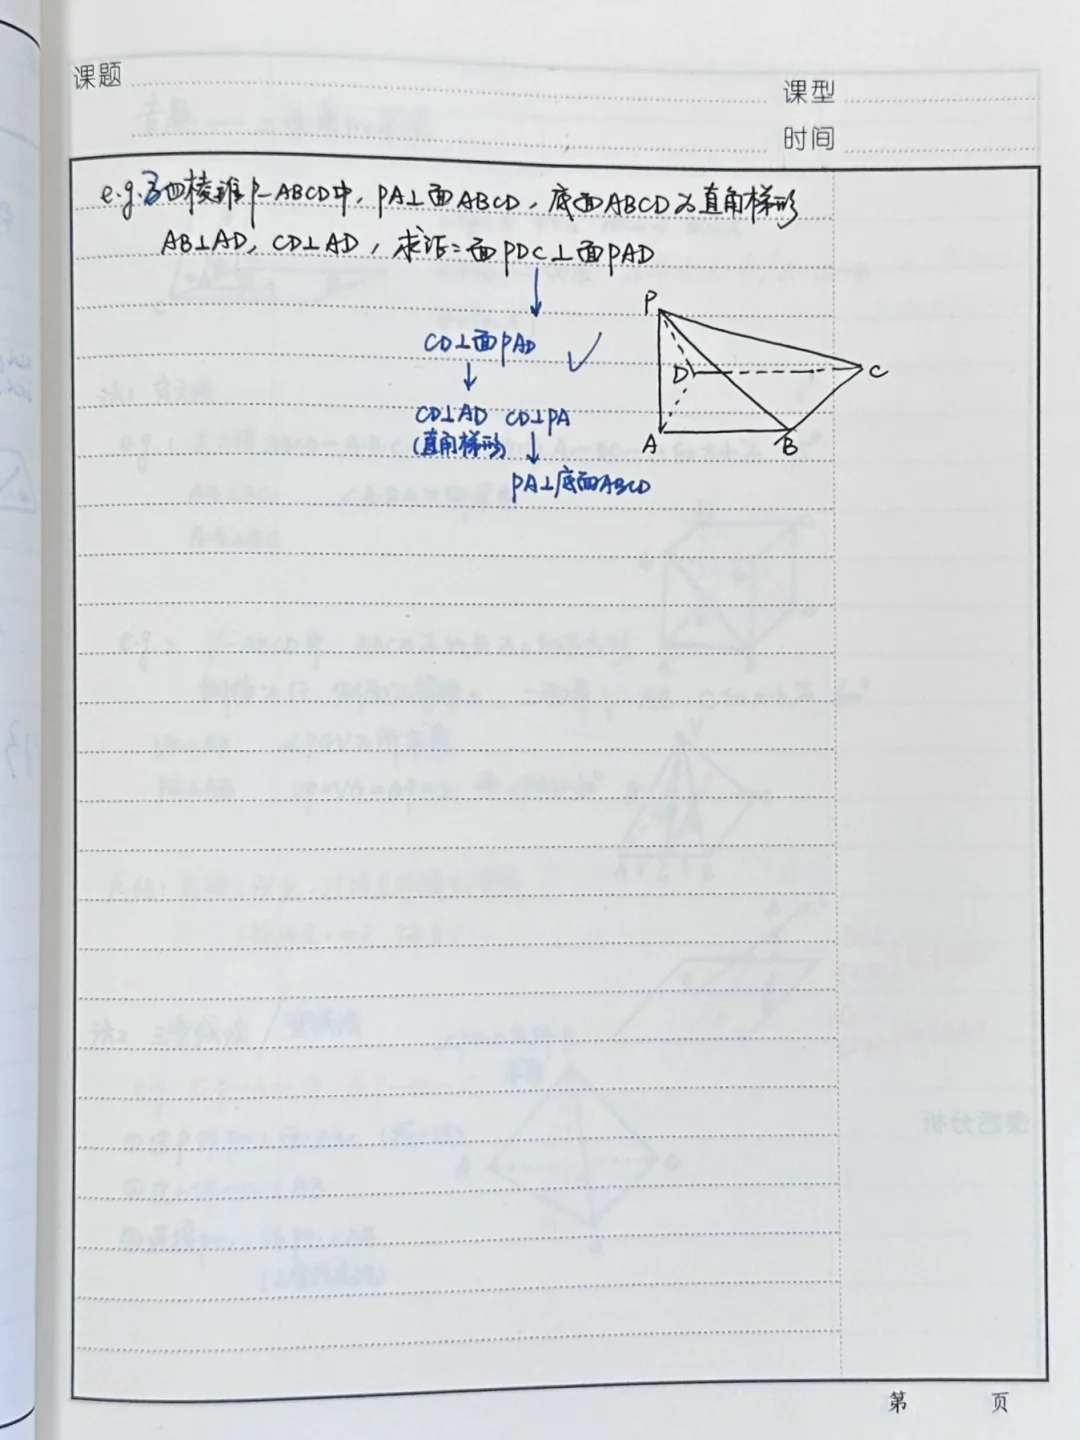 课题
课型
时间
e.g.3 四棱锥P-ABCD中，PA⊥面ABCD，底面ABCD为直角梯形
AB⊥AD，CD⊥AD，求证：面PDC⊥面PAD
CD⊥面PAD
CD⊥AD CD⊥PA
(直角梯形)
PA⊥底面ABCD
P
D
C
A
B
第 页